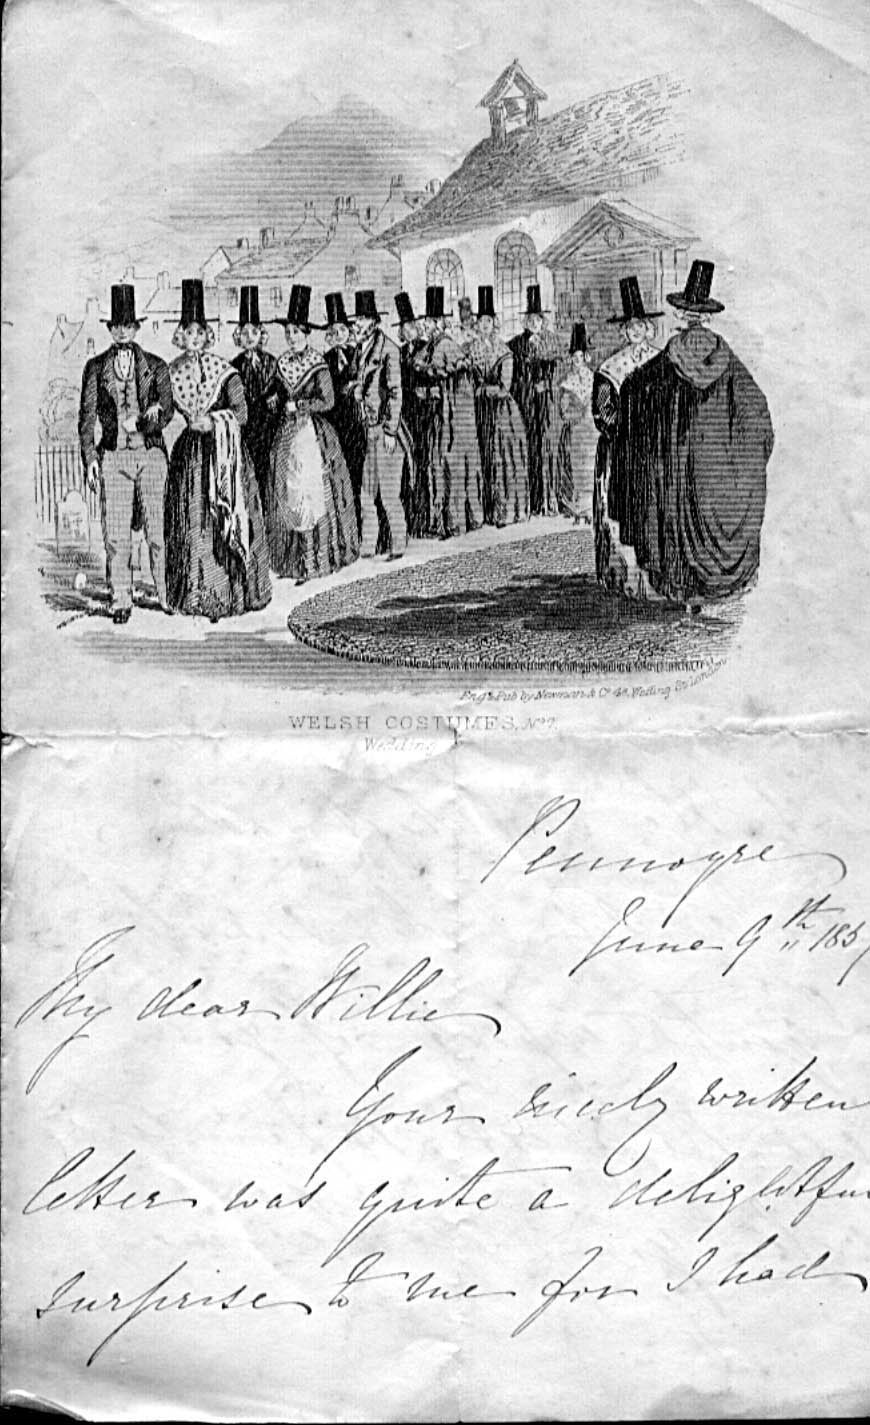 Eng & Pub by Newman & Co 48, Watling St London
WELSH COSTUMES, No 7.
Wedding
Pennoyre
June 9th 185
My dear Willie
Your nicely written
letter was quite a delightfu
surprise to me for I had